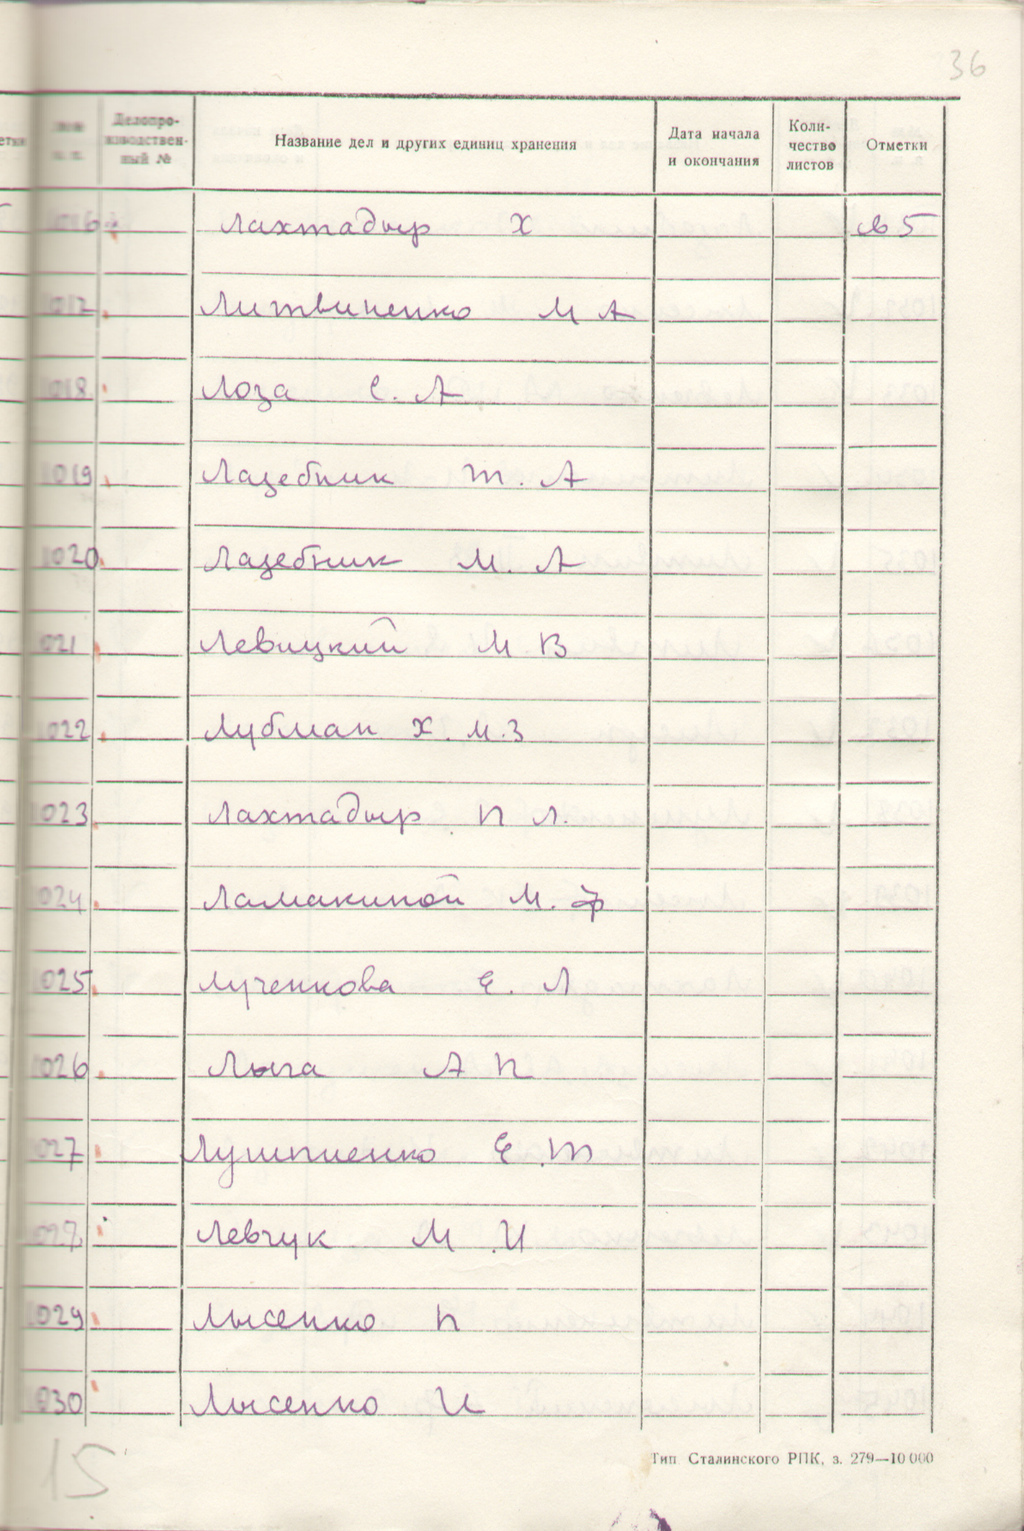 36
Делопро-
изводствен-
ный №
Название дел и других единиц хранения
Дата начала
и окончания
Коли-
чество
листов
Отметки
Лахтадыр Х
1017 Литвиненко М А
1018 Лоза Е. А
1019 Лазебник Т. А
1020 Лазебник М. А
021 Левицкий М В
1022 Лубман Х. М. З
1023 Лахтадыр П Л.
1024 Ламакиной М. Ф
1025 Лученкова Е. Л
1026 Лыга А П
027 Лушпиенко Е. Т
Левчук М И
1029 Лысенко П
1030 Лысенко И
15
Тип. Сталинского РПК, з. 279—10 000